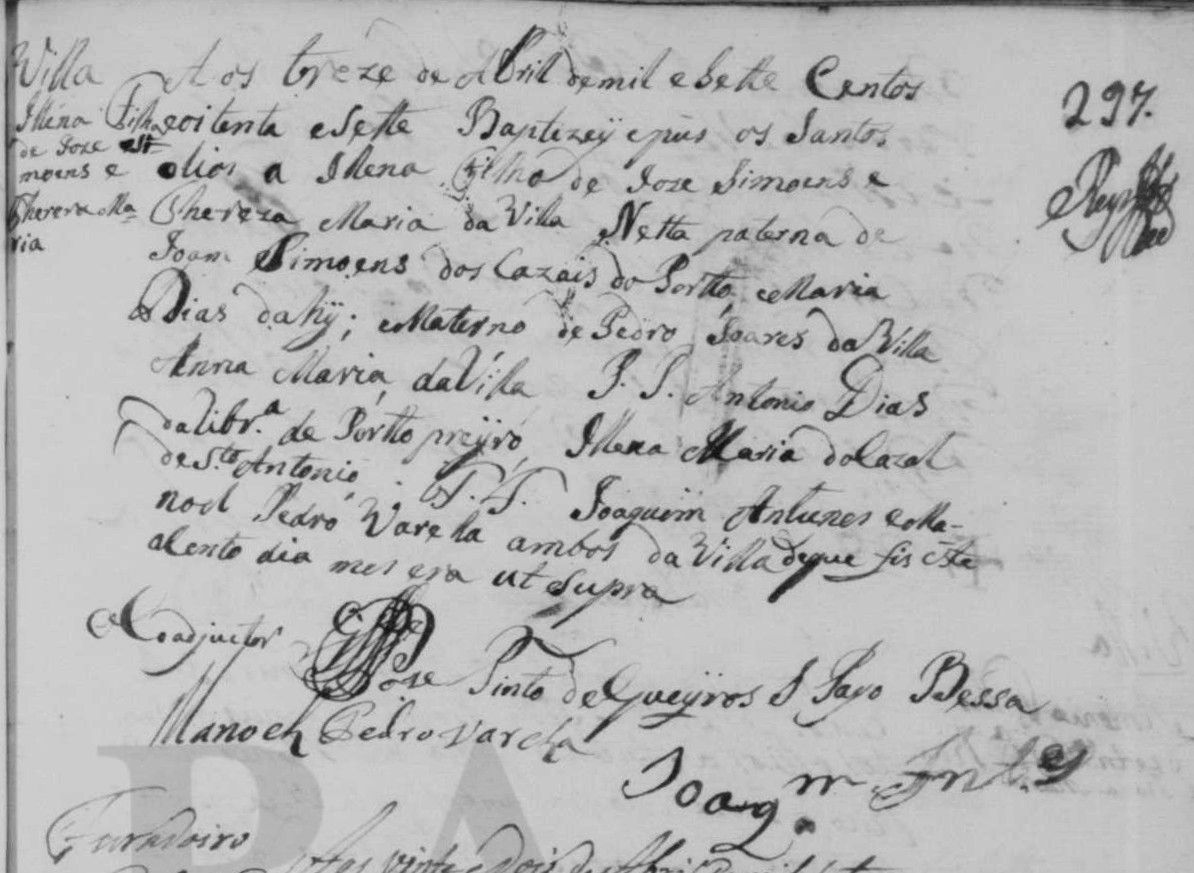 Villa
Illena Filha
de Joze Si
moens e
Thereza Ma
ria
Aos treze de Abril de mil e Sette Centos
e oitenta e Sette Baptezey e pus os Santos
olios a Illena Filha de Joze Simoens e
Thereza Maria da Villa Netta paterna de
Joam Simoens dos Cazais do Portto, e Maria
Dias dahy; e Materno de Pedro Soares da Villa
Anna Maria da Villa P. P. Antonio Dias
da Ribr.ª de Portto
Illena Maria do Cazal
de S.to Antonio. T. T. Joaquim Antunes e Ma-
noel Pedro Varella ambos da Villa de que fis este
asento dia mes era ut Supra
O Coadjuctor
Joze Pinto de Queyros S Payo Bessa
Manoel Pedro Varella
Joaq.m Ant.es
297.
Furadoiro
Aos vinte e dois de Abril de mil
Villa
RA